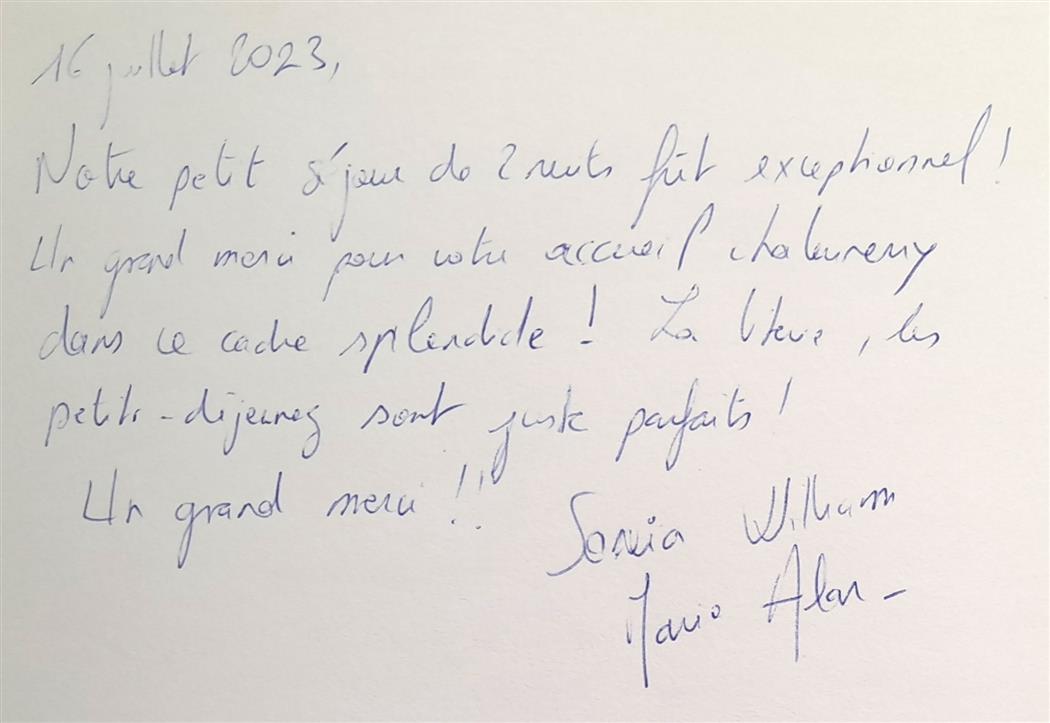 16 juillet 2023,
Notre petit séjour de 2 nuits fût exceptionnel !
Un grand merci pour votre accueil chaleureux
dans ce cadre splendide ! La literie, les
petits-déjeuners sont juste parfaits !
Un grand merci !!
Sonia William
Mario Alan -